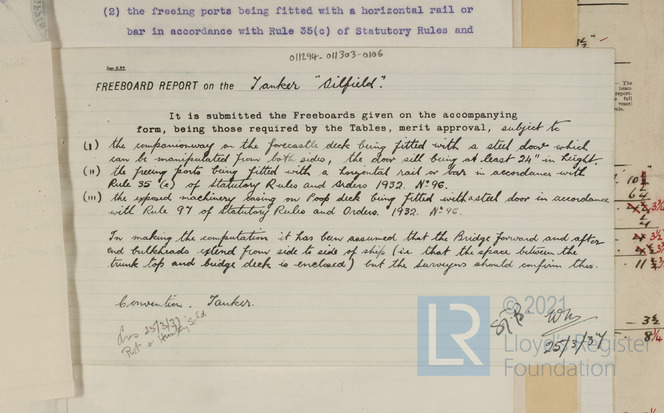 (2) the freeing ports being fitted with a horizontal rail or
bar in accordance with Rule 35(c) of Statutory Rules and
011294-011303-0106
FREEBOARD REPORT on the Tanker "Oilfield".
It is submitted the Freeboards given on the accompanying
form, being those required by the Tables, merit approval, subject to
(i) the companionway on the forecastle deck being fitted with a steel door which
can be manipulated from both sides, the door sill being at least 24" in height.
(ii) the freeing ports being fitted with a horizontal rail or bar in accordance with
Rule 35 (c) of Statutory Rules and Orders 1932. No 96.
(iii) the exposed machinery casing on Poop deck being fitted with a steel door in accordance
with Rule 97 of Statutory Rules and Orders. 1932. No 96.
In making the computation it has been assumed that the Bridge forward and after
end bulkheads extend from side to side of ship (i.e. that the space between the
trunk top and bridge deck is enclosed) but the surveyors should confirm this.
Convention. Tanker.
25/3/37
25/3/37
LR
© 2021
Lloyd's Register
Foundation
The
beam
report-
full
vessel
Rule.
11 3/4
3 1/2
8 1/4